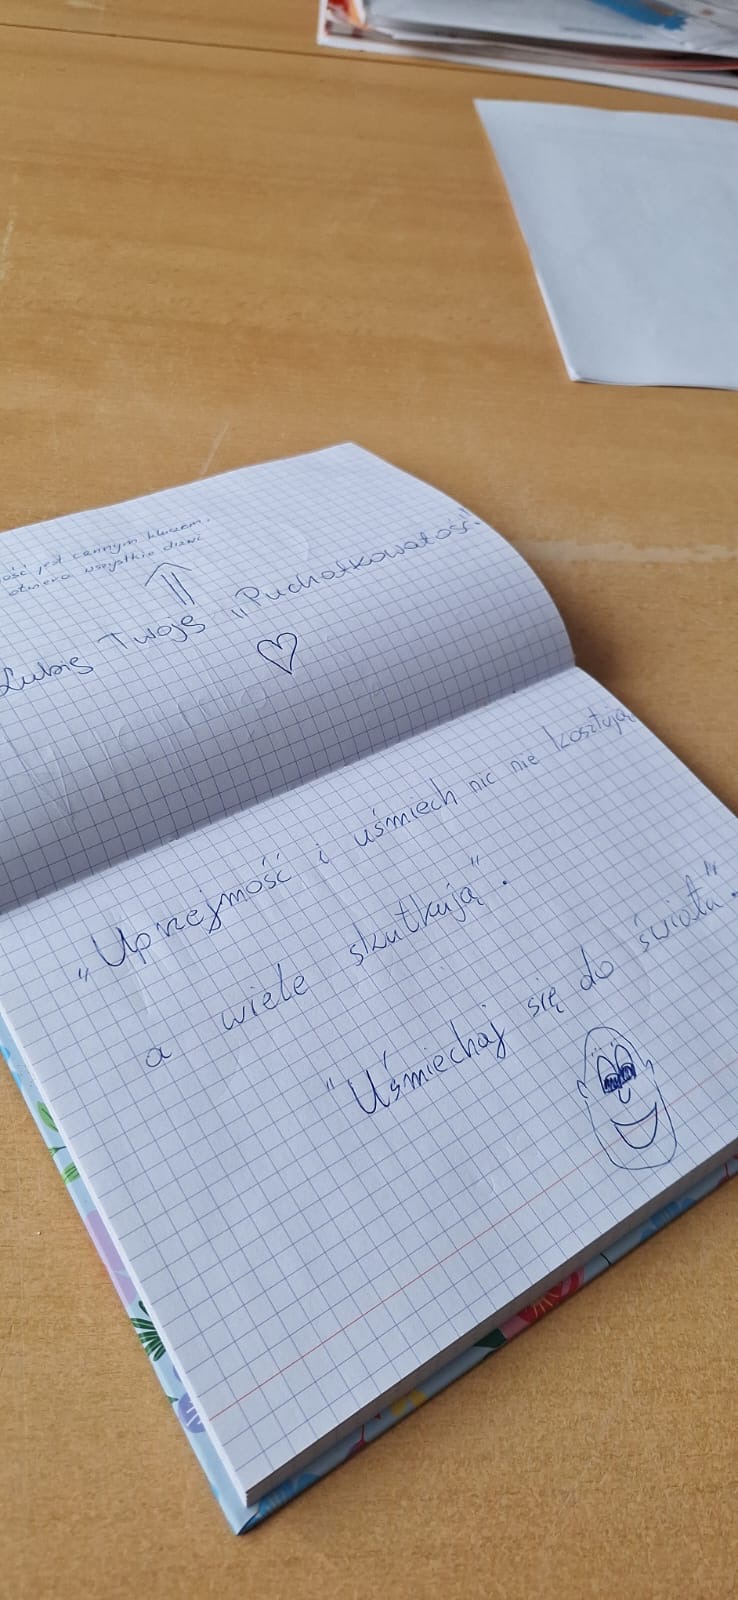 ość jest cennym kluczem,
otwiera wszystkie drzwi
Lubię Twoję „Puchatkowatość"
„Uprzejmość i uśmiech nic nie kosztują
a wiele skutkują".
"Uśmiechaj się do świata".